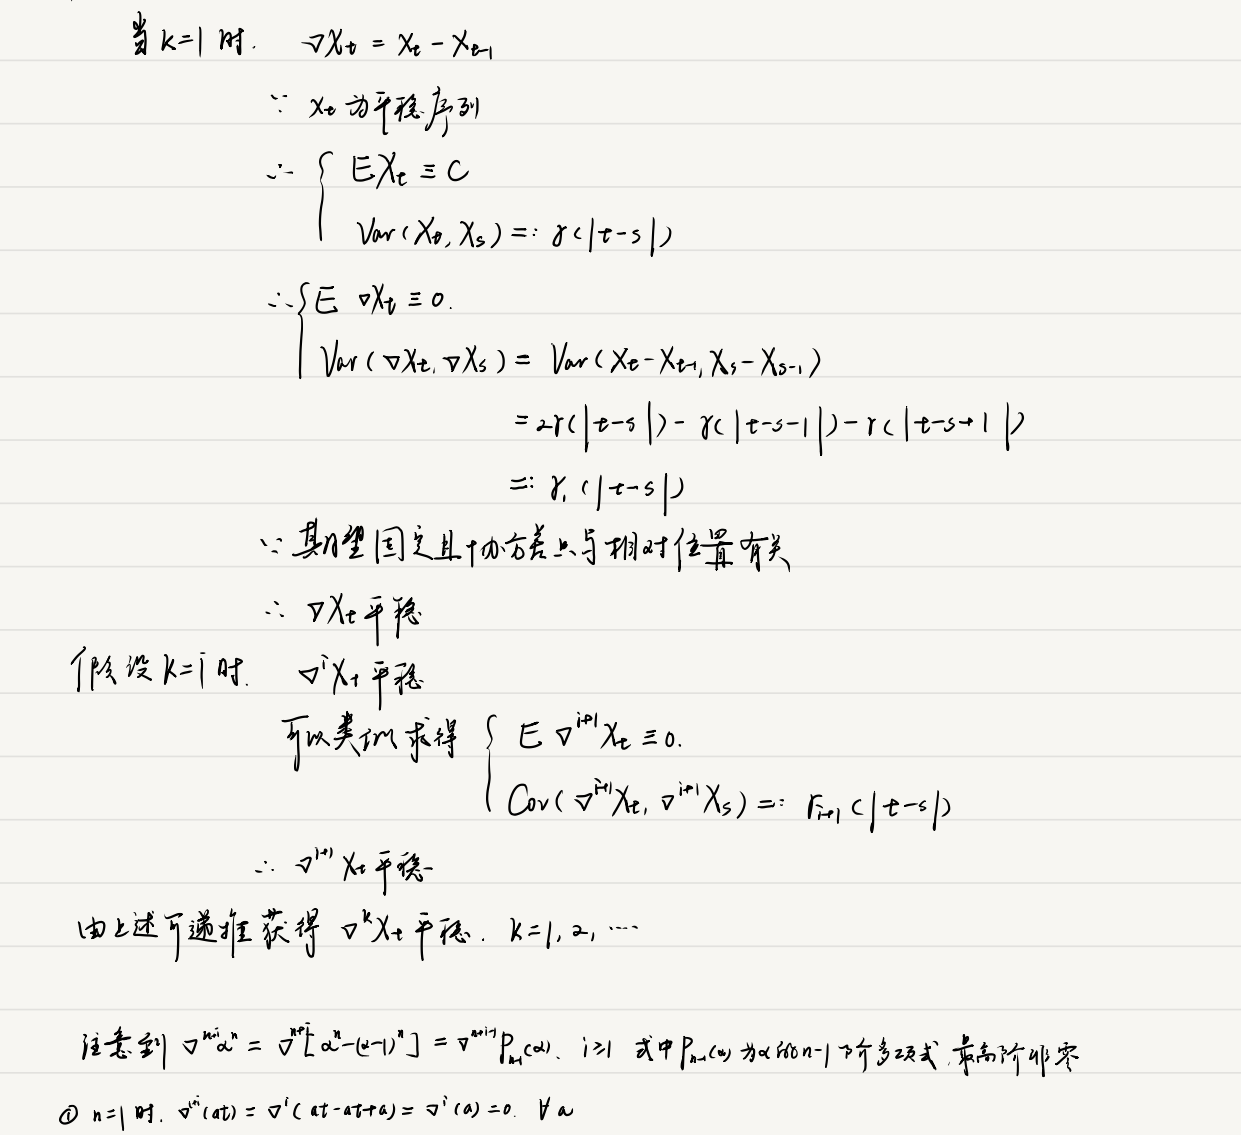 当 k=1 时. ∇X_t = X_t - X_{t-1}
∵ X_t 为平稳序列
∴ { EX_t ≡ C
Var(X_t, X_s) =: γ(|t-s|)
∴ { E ∇X_t ≡ 0.
Var(∇X_t, ∇X_s) = Var(X_t - X_{t-1}, X_s - X_{s-1})
= 2γ(|t-s|) - γ(|t-s-1|) - γ(|t-s+1|)
=: γ_1(|t-s|)
∵ 期望固定且协方差只与相对位置有关
∴ ∇X_t 平稳
假设 k=i 时. ∇^i X_t 平稳
可以类似求得 { E ∇^{i+1} X_t ≡ 0.
Cov(∇^{i+1} X_t, ∇^{i+1} X_s) =: γ_{i+1}(|t-s|)
∴ ∇^{i+1} X_t 平稳
由上述可递推获得 ∇^k X_t 平稳. k=1, 2, ⋯
注意到 ∇^{n+i} α^n = [α^n - (α-1)^n] = P_{n-1}(α). i≥1 式中 P_{n-1}(α) 为α的n-1阶多项式,最高阶非零
① n=1 时. ∇^{1+i}(at) = ∇^i(at-at+a) = ∇^i(a) = 0. ∀ a